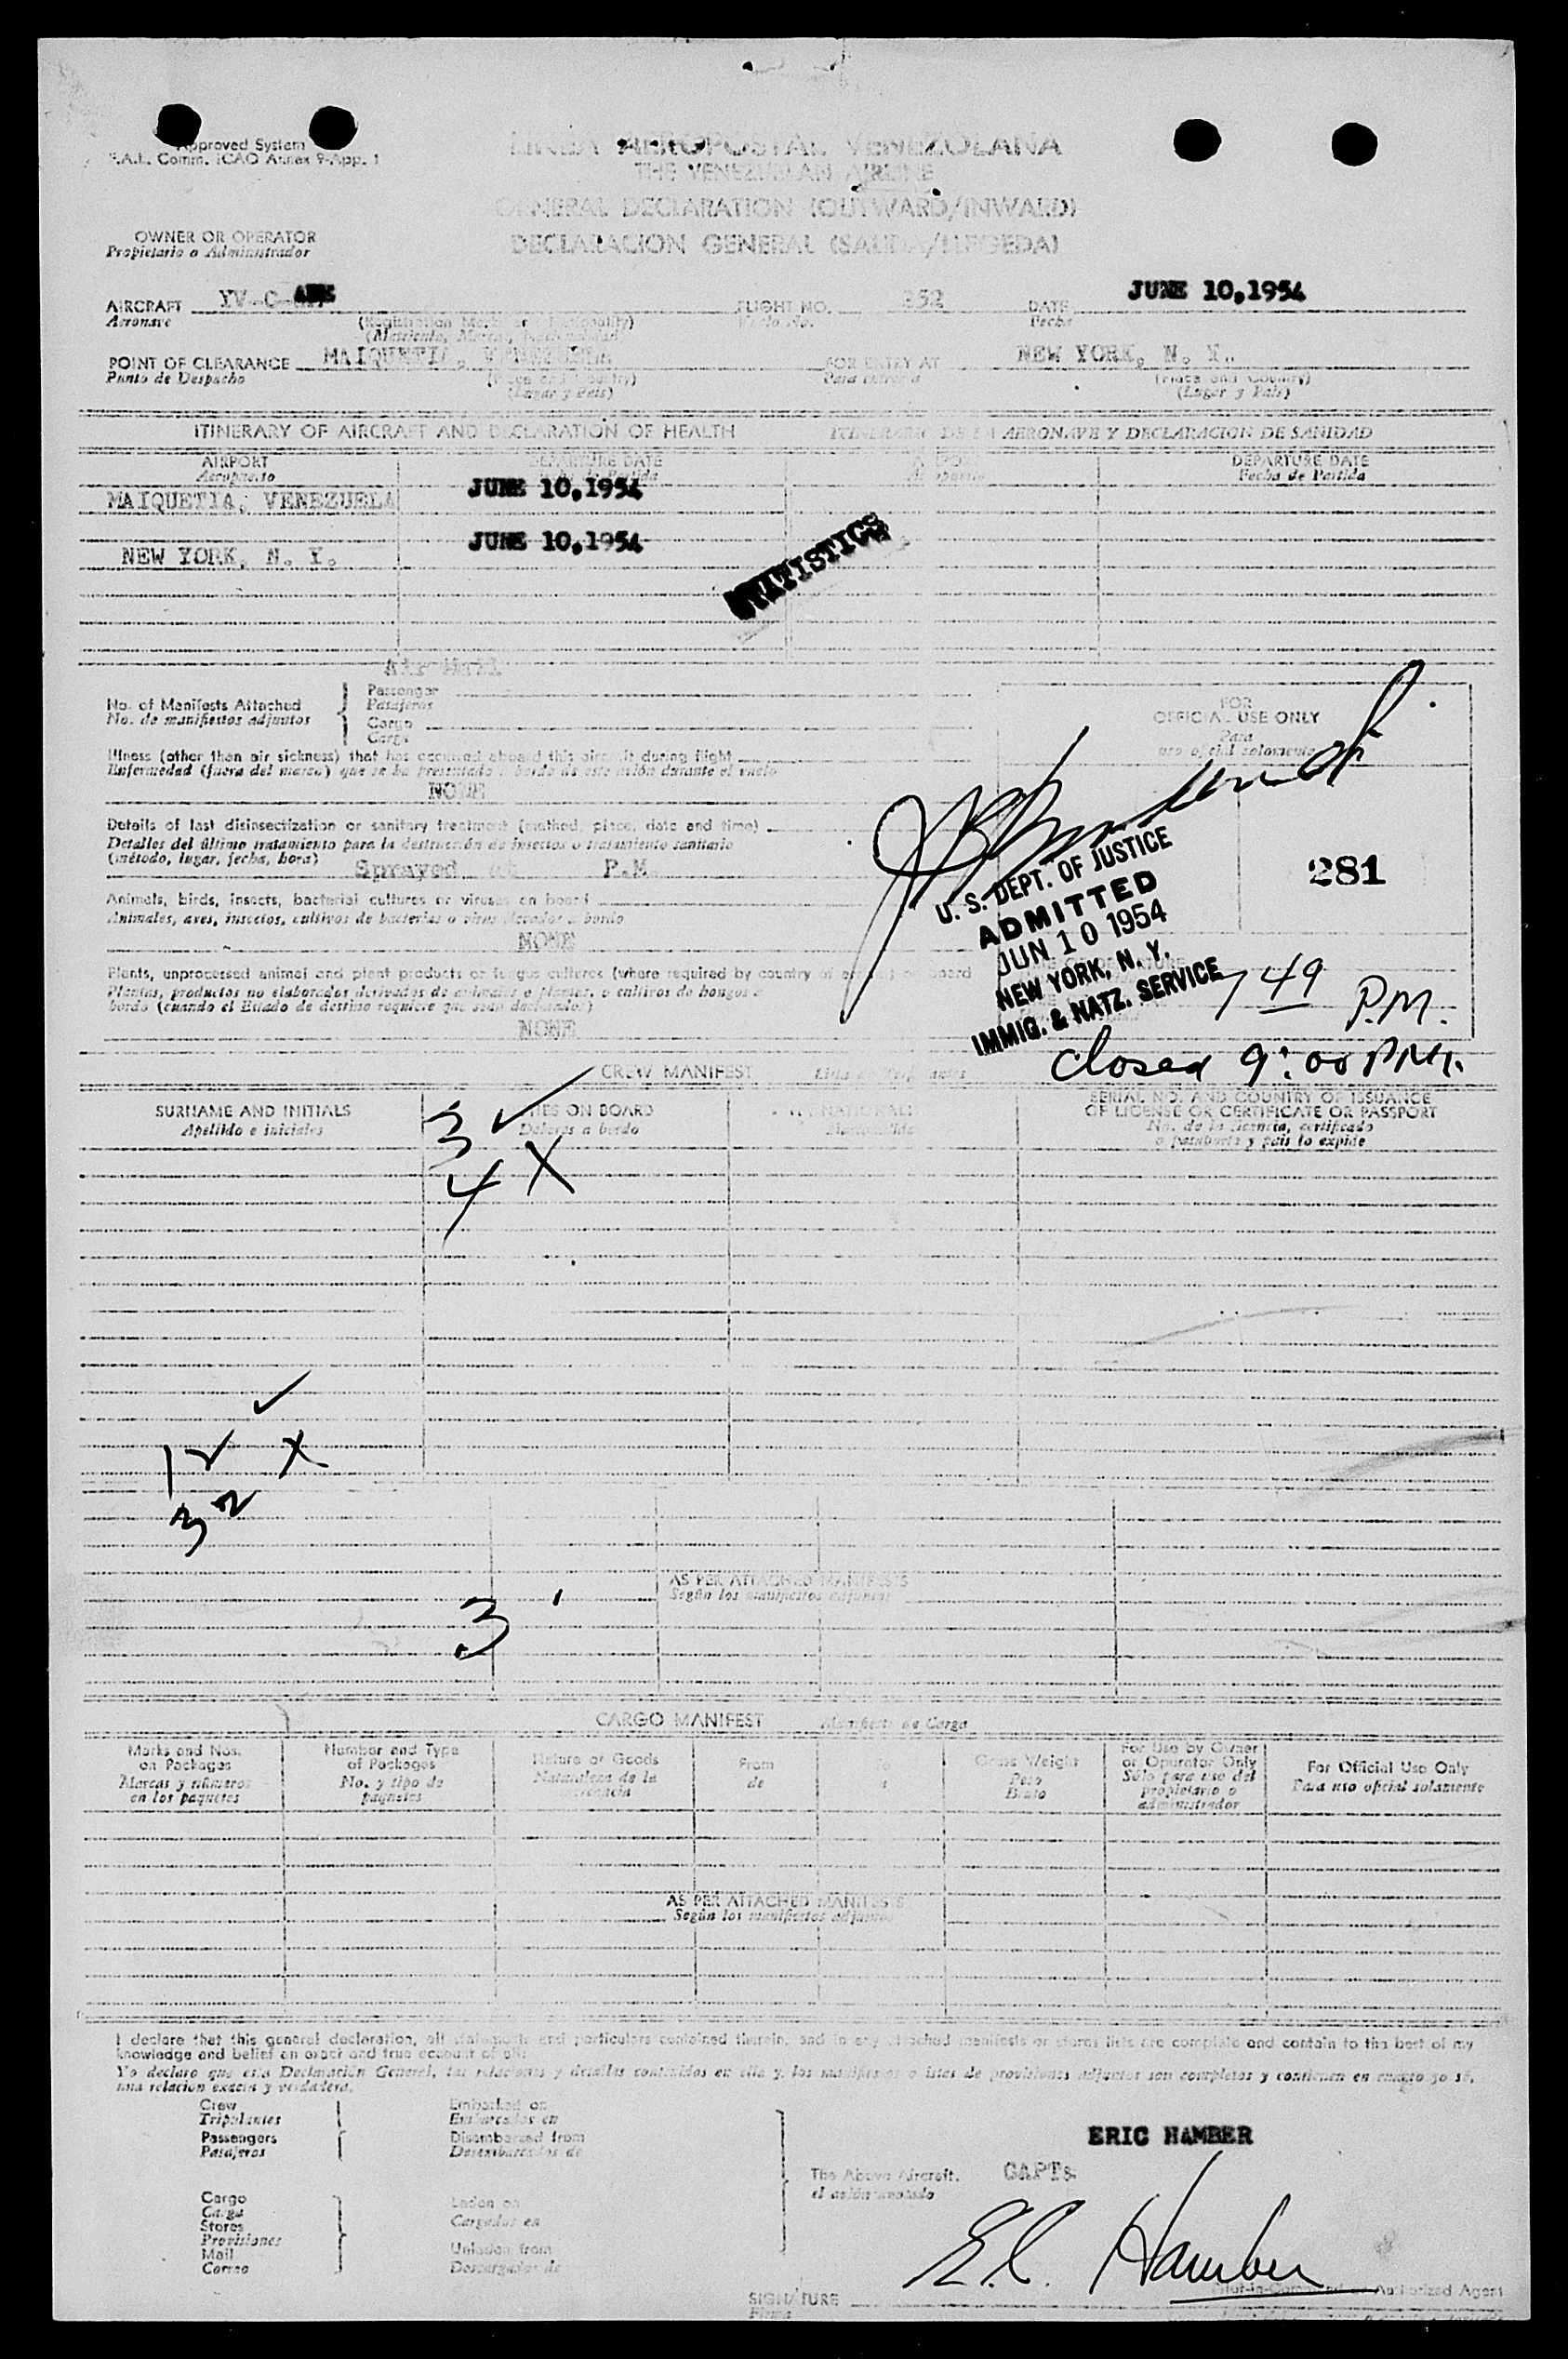 Approved System
F.A.L. Comm. ICAO Annex 9-App. 1
LINEA AEROPOSTAL VENEZOLANA
THE VENEZUELAN AIRLINE
GENERAL DECLARATION (OUTWARD/INWARD)
DECLARACION GENERAL (SALIDA/LLEGEDA)
OWNER OR OPERATOR
Propietario o Administrador
AIRCRAFT YV-C- FLIGHT NO. 252 DATE JUNE 10,1954
Aeronave Fecha
POINT OF CLEARANCE MAIQUETIA, VENEZUELA FOR ENTRY AT NEW YORK, N. Y.
Punto de Despacho (Place and Country) (Place and Country)
(Lugar y País) (Lugar y País)
ITINERARY OF AIRCRAFT AND DECLARATION OF HEALTH ITINERARIO DE LA AERONAVE Y DECLARACION DE SANIDAD
AIRPORT DEPARTURE DATE AIRPORT DEPARTURE DATE
Aeropuerto Fecha de Partida Aeropuerto Fecha de Partida
MAIQUETIA, VENEZUELA JUNE 10,1954
NEW YORK, N. Y. JUNE 10,1954
STATISTICS
Air Mail
No. of Manifests Attached Passenger
No. de manifiestos adjuntos Pasajeros
Cargo
Carga
FOR
OFFICIAL USE ONLY
Para
uso oficial solamente
Illness (other than air sickness) that has occurred aboard this aircraft during flight
Enfermedad (fuera del mareo) que se ha presentado a bordo de este avión durante el vuelo
NONE
Details of last disinsectization or sanitary treatment (method, place, date and time)
Detalles del último tratamiento para la destrucción de insectos o tratamiento sanitario
(método, lugar, fecha, hora)
Sprayed at P.M
281
Animals, birds, insects, bacterial cultures or viruses on board
Animales, aves, insectos, cultivos de bacterias o virus llevados a bordo
NONE
U. S. DEPT. OF JUSTICE
ADMITTED
JUN 10 1954
NEW YORK, N. Y.
IMMIG. & NATZ. SERVICE
Plants, unprocessed animal and plant products or fungus cultures (where required by country of entry) on board
Plantas, productos no elaborados derivados de animales o plantas, o cultivos de hongos a
bordo (cuando el Estado de destino requiere que sean declarados)
NONE
7 49 P.M.
Closed 9:00 P.M.
CREW MANIFEST
SURNAME AND INITIALS DUTIES ON BOARD NATIONALITY SERIAL NO. AND COUNTRY OF ISSUANCE
OF LICENSE OR CERTIFICATE OR PASSPORT
Apellido e iniciales Deberes a bordo Nacionalidad No. de la licencia, certificado
o pasaporte y país lo expide
3 ✓
4 X
✓
1 ✓ X
3 2
AS PER ATTACHED MANIFESTS
Según los manifiestos adjuntos
3
CARGO MANIFEST Manifiesto de Carga
Marks and Nos. on Packages Number and Type of Packages Nature of Goods From To Gross Weight For Use by Owner or Operator Only For Official Use Only
Marcas y números en los paquetes No. y tipo de paquetes Naturaleza de la mercancía de a Peso Bruto Sólo para uso del propietario o administrador Para uso oficial solamente
AS PER ATTACHED MANIFESTS
Según los manifiestos adjuntos
I declare that this general declaration, all statements and particulars contained therein, and in any attached manifests or stores lists are complete and contain to the best of my
knowledge and belief an exact and true account of all:
Yo declaro que esta Declaración General, las relaciones y detalles contenidos en ella y los manifiestos o listas de provisiones adjuntos son completos y contienen en cuanto yo sé,
una relación exacta y verdadera.
Crew Embarked on
Tripulantes Embarcados en
Passengers Disembarked from
Pasajeros Desembarcados de
ERIC HAMBER
The Above Aircraft. CAPT.
el avión anotado
Cargo Laden on
Carga Cargados en
Stores
Provisiones
Mail Unladen from
Correo Descargados de
E.C. Hamber
SIGNATURE Pilot-in-Command or Authorized Agent
Firma